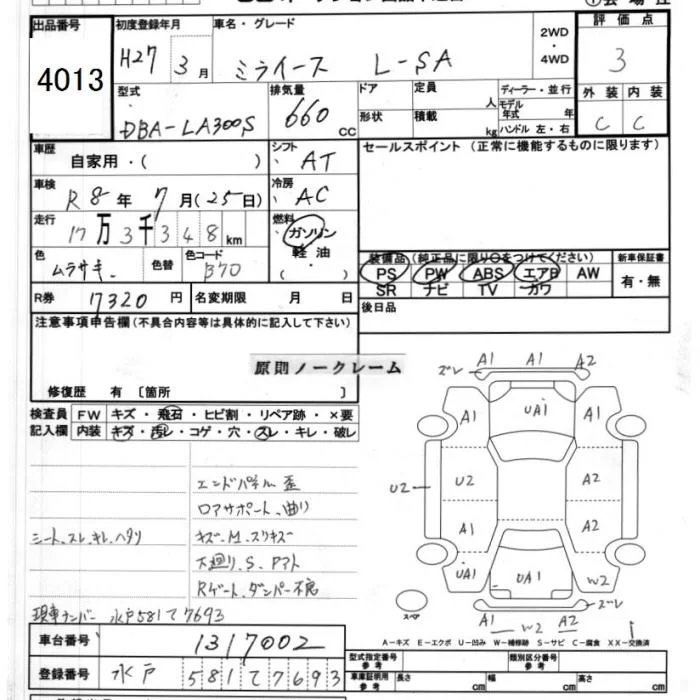 出品番号 初度登録年月 車名・グレード 2WD・4WD 評価点
4013 H27 3月 ミライース L-SA 3
型式 排気量 ドア 定員 人 ディーラー・並行 外装 内装
DBA-LA300S 660 cc 形状 積載 kg モデル年式 年 ハンドル 左・右 C C
車歴 自家用・( ) シフト AT セールスポイント(正常に機能するものに限ります)
車検 R8年7月(25日) 冷房 AC
走行 17万3千348km 燃料 ガソリン・軽油・( )
色 ムラサキ 色替 色コード 装備品(純正品に限り○をつけてください) 新車保証書
PS PW ABS エアB AW 有・無
SR ナビ TV カワ
R券 7320円 名変期限 月 日 後日品
注意事項申告欄(不具合内容等は具体的に記入して下さい)
原則ノークレーム
修復歴 有〔箇所 〕
検査員 FW キズ・飛石・ヒビ割・リペア跡・×要
記入欄 内装 キズ・汚レ・コゲ・穴・スレ・キレ・破レ
ズレ A1 A1 A2
A1 UA1 A1
U2 U2 A2
A1 A2
UA1 UA1 W2
スペア A1 W2 A2 ズレ
エンドパネル歪
ロアサポート、曲り
シート、スレ、キレ、ヘタリ キズ、M、スリキズ
下廻り、S、アト
Rゲート、ダンパー不良
現車ナンバー 水戸581て7693
A-キズ E-エクボ U-凹み W-補修跡 S-サビ C-腐食 XX-交換済
車台番号 1317002
登録番号 水戸581て7693
型式指定番号 参考 類別区分番号 参考
車庫証明用 参考 長さ cm 幅 cm 高さ cm